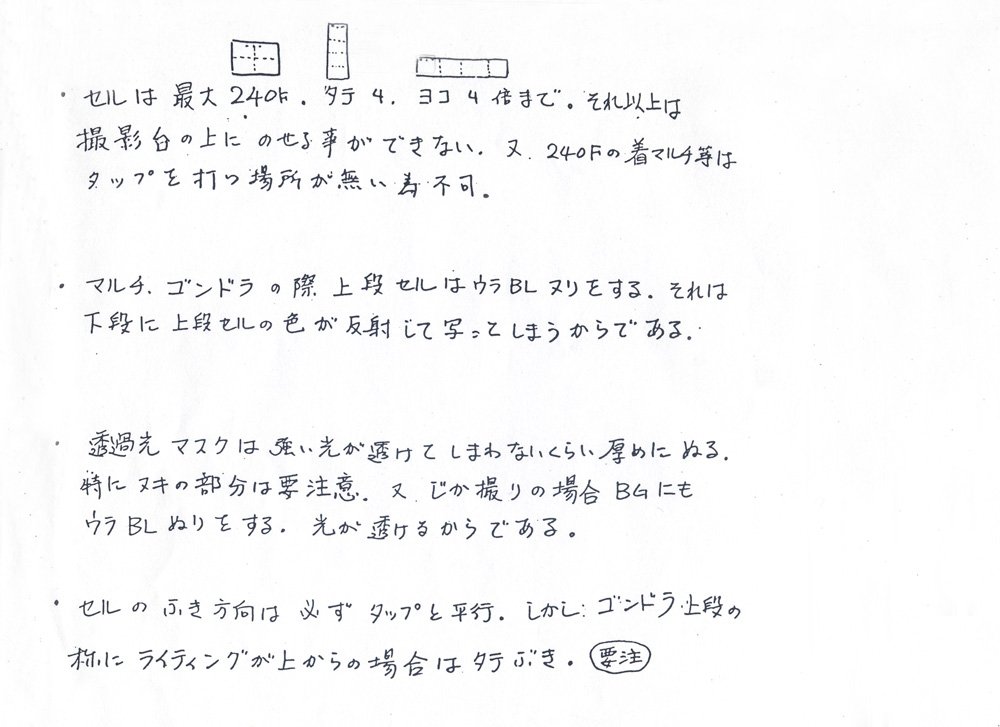 ・セルは最大240F. タテ4. ヨコ4倍まで。それ以上は
撮影台の上にのせる事ができない. 又. 240Fの着マルチ等は
タップを打つ場所が無い為不可.
・マルチ. ゴンドラの際上段セルはウラBLヌリをする. それは
下段に上段セルの色が反射して写ってしまうからである.
・透過光マスクは強い光が透けてしまわないくらい厚めにぬる.
特にヌキの部分は要注意. 又じか撮りの場合BGにも
ウラBLぬりをする. 光が透けるからである。
・セルのふき方向は必ずタップと平行. しかし: ゴンドラ上段の
様にライティングが上からの場合はタテぶき. 要注